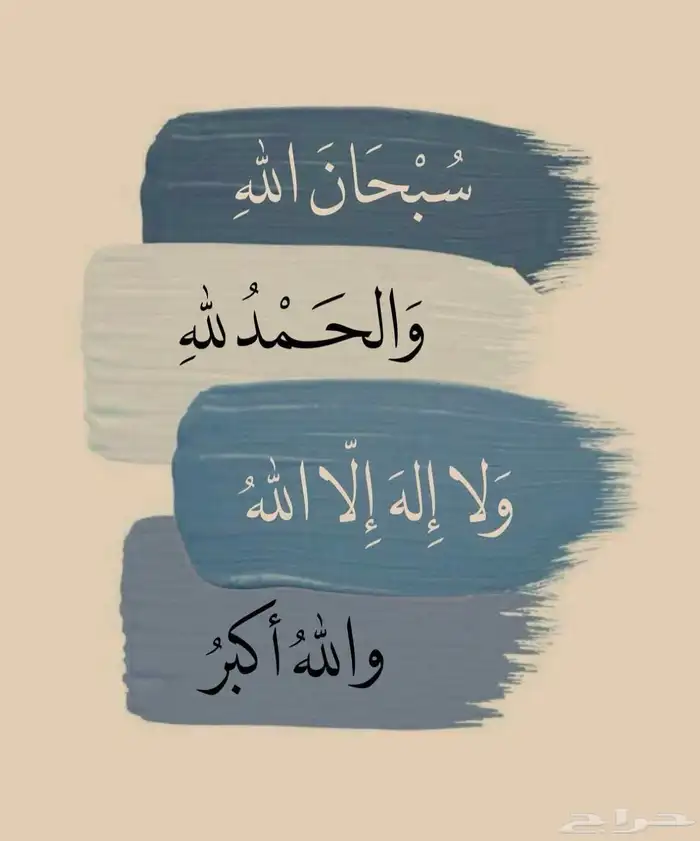 سُبْحَانَ اللهِ
وَالحَمْدُ للهِ
وَلا إِلهَ إِلّا اللهُ
واللهُ أكبرُ
حراج